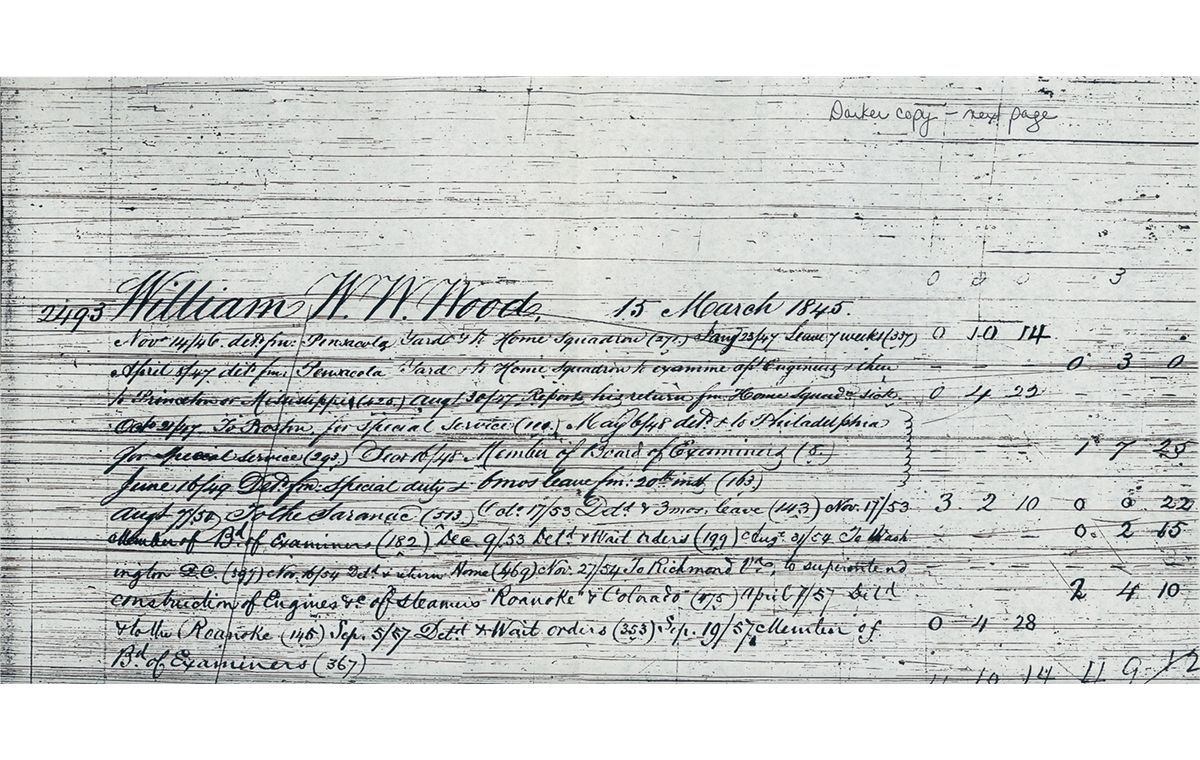 Darker copy - next page
0 0 0 3
2493 William W. W. Wood, 15 March 1845.
Novr 14/46 detd fm: Pensacola Yard & to Home Squadron (271) Jany 23/47 Leave 7 weeks (357) 0 10 14
April 5/47 detd fm: Pensacola Yard & to Home Squadron to examine asst Engineers & then - - - 0 3 0
to Princeton or Mississippi (420) Augt 30/47 Reports his return fm Home Squadn sick. 0 4 22
Octo 21/47 To Boston for special service (110.) May 6/48 detd & to Philadelphia
for special service (293) Decr 16/48 Member of Board of Examiners (5.) - - - 1 7 25
June 16/49 Detd fm: special duty & 6 mos leave fm: 20th inst (163)
Augt 7/50 To the Saranac (313) Octo 17/53 Detd & 3 mos. leave (143) Nov. 17/53 3 2 10 0 0 22
Member of Bd of Examiners (182) Dec 9/53 Detd & Wait orders (199) Augt 31/54 To Wash - - - 0 2 15
ington D.C. (397) Nov. 16/54 Detd & return Home (469) Nov. 27/54 To Richmond Va, to superintend - - -
construction of Engines &c of Steamers "Roanoke" & Colorado (475) April 7/57 Detd 2 4 10
& to the Roanoke (145) Sep. 5/57 Detd & Wait orders (353) Sep. 19/57 Member of 0 4 28
Bd of Examiners (367)
10 14 11 9 12